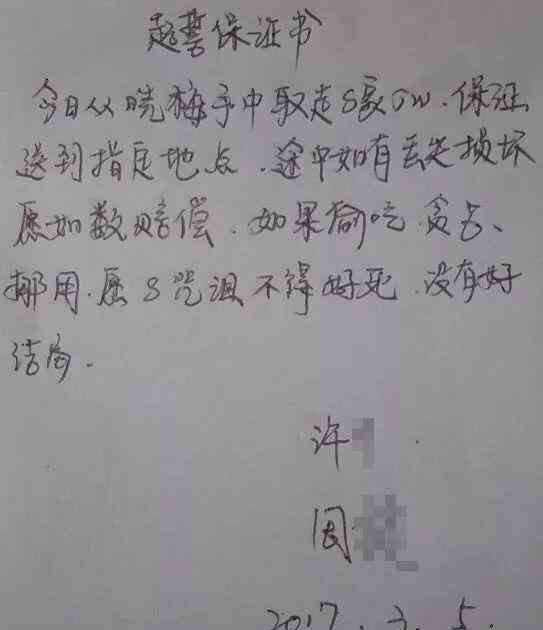 起誓保证书
今日从晓梅手中取走S家5W.保证
送到指定地点.途中如有丢失损坏
愿如数赔偿.如果偷吃.贪占、
挪用.愿S咒诅不得好死.没有好
结局.
许
因
2017.3.5.